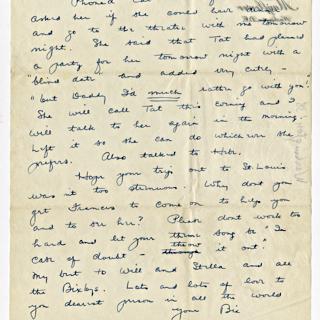 Phoned
asked her if she could have
and go to the theatre with me tomorrow
night. She said that Tat had planned
a party for her tomorrow night with a
"blind date" and added very cutely -
"but Daddy I'd much rather go with you!"
She will call Tat this evening and I
will talk to her again in the morning.
Left it so she can do whichever she
prefers. Also talked to
Hope your trip out to St. Louis
was not too strenuous. Why dont you
get Frances to come on to help you
and to see her? Please dont work too
hard and let your theme song be "In
case of doubt - throw it out."
My best to Will and Stella and all
the Bixbys. Lots and lots of love to
you dearest person in all the world
your Bix